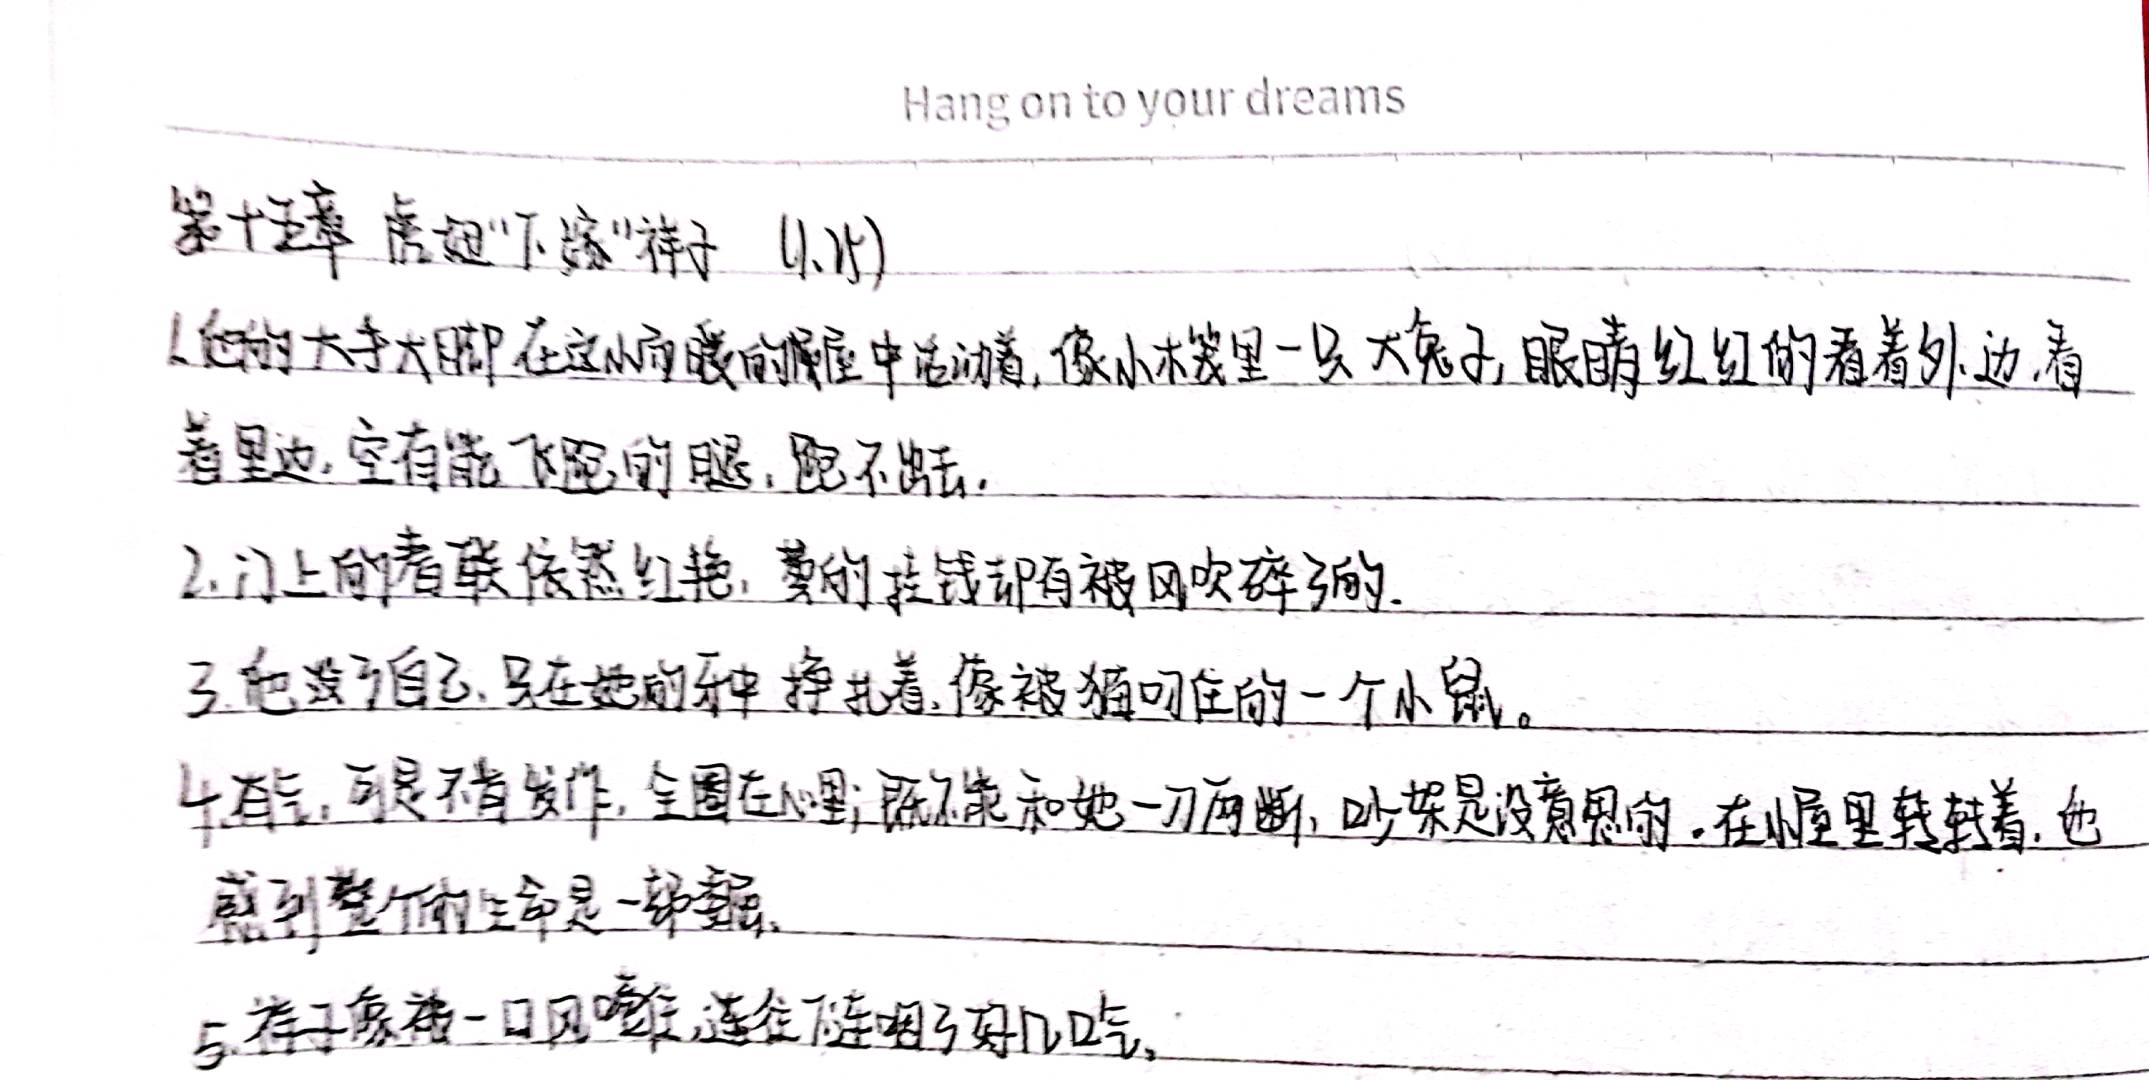 Hang on to your dreams
第十五章 虎妞“下嫁”祥子 (1.25)
1.他的大手大脚在这小而暖的屋中活动着,像小木笼里一只大兔子,眼睛红红的看着外边,看
着里边,空有能飞跑的腿,跑不出去.
2.门上的春联依然红艳,黄的挂钱却有被风吹碎了的.
3.他没了自己,只在她的牙中挣扎着,像被猫叼住的一个小鼠。
4.有气,可是不肯发作,全圈在心里;既不能和她一刀两断,吵架是没意思的.在小屋里转转着,他
感到整个的生命是一部委屈.
5.祥子像被一口风噎住,连往下连咽了好几口气.